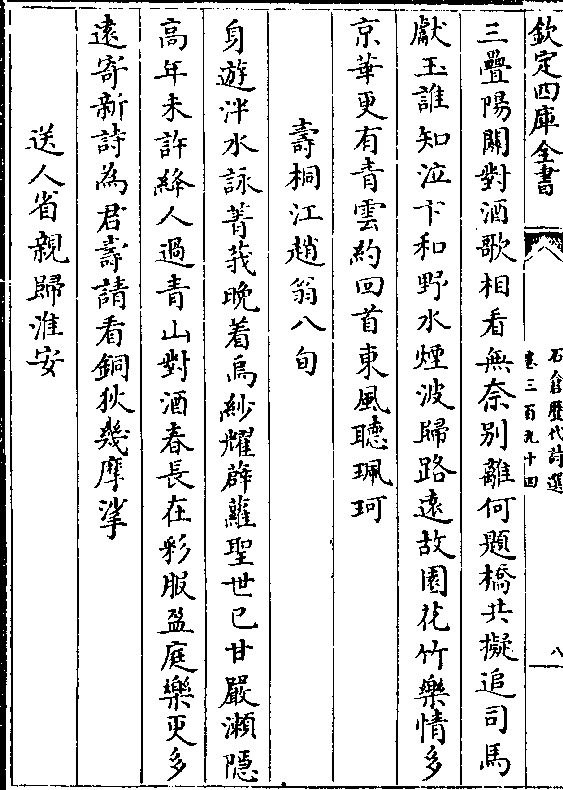 欽定四庫全書
石倉歷代詩選
卷三百九十四
八
三疊陽關對酒歌相看無奈別離何題橋共擬追司馬
獻玉誰知泣卞和野水煙波歸路遠故園花竹樂情多
京華更有青雲約回首東風聽珮珂
壽桐江趙翁八旬
身遊泮水詠菁莪晚着烏紗耀薜蘿聖世已甘嚴瀨隱
高年未許絳人過青山對酒春長在彩服盈庭樂更多
遠寄新詩為君壽請看銅狄幾摩挲
送人省親歸淮安